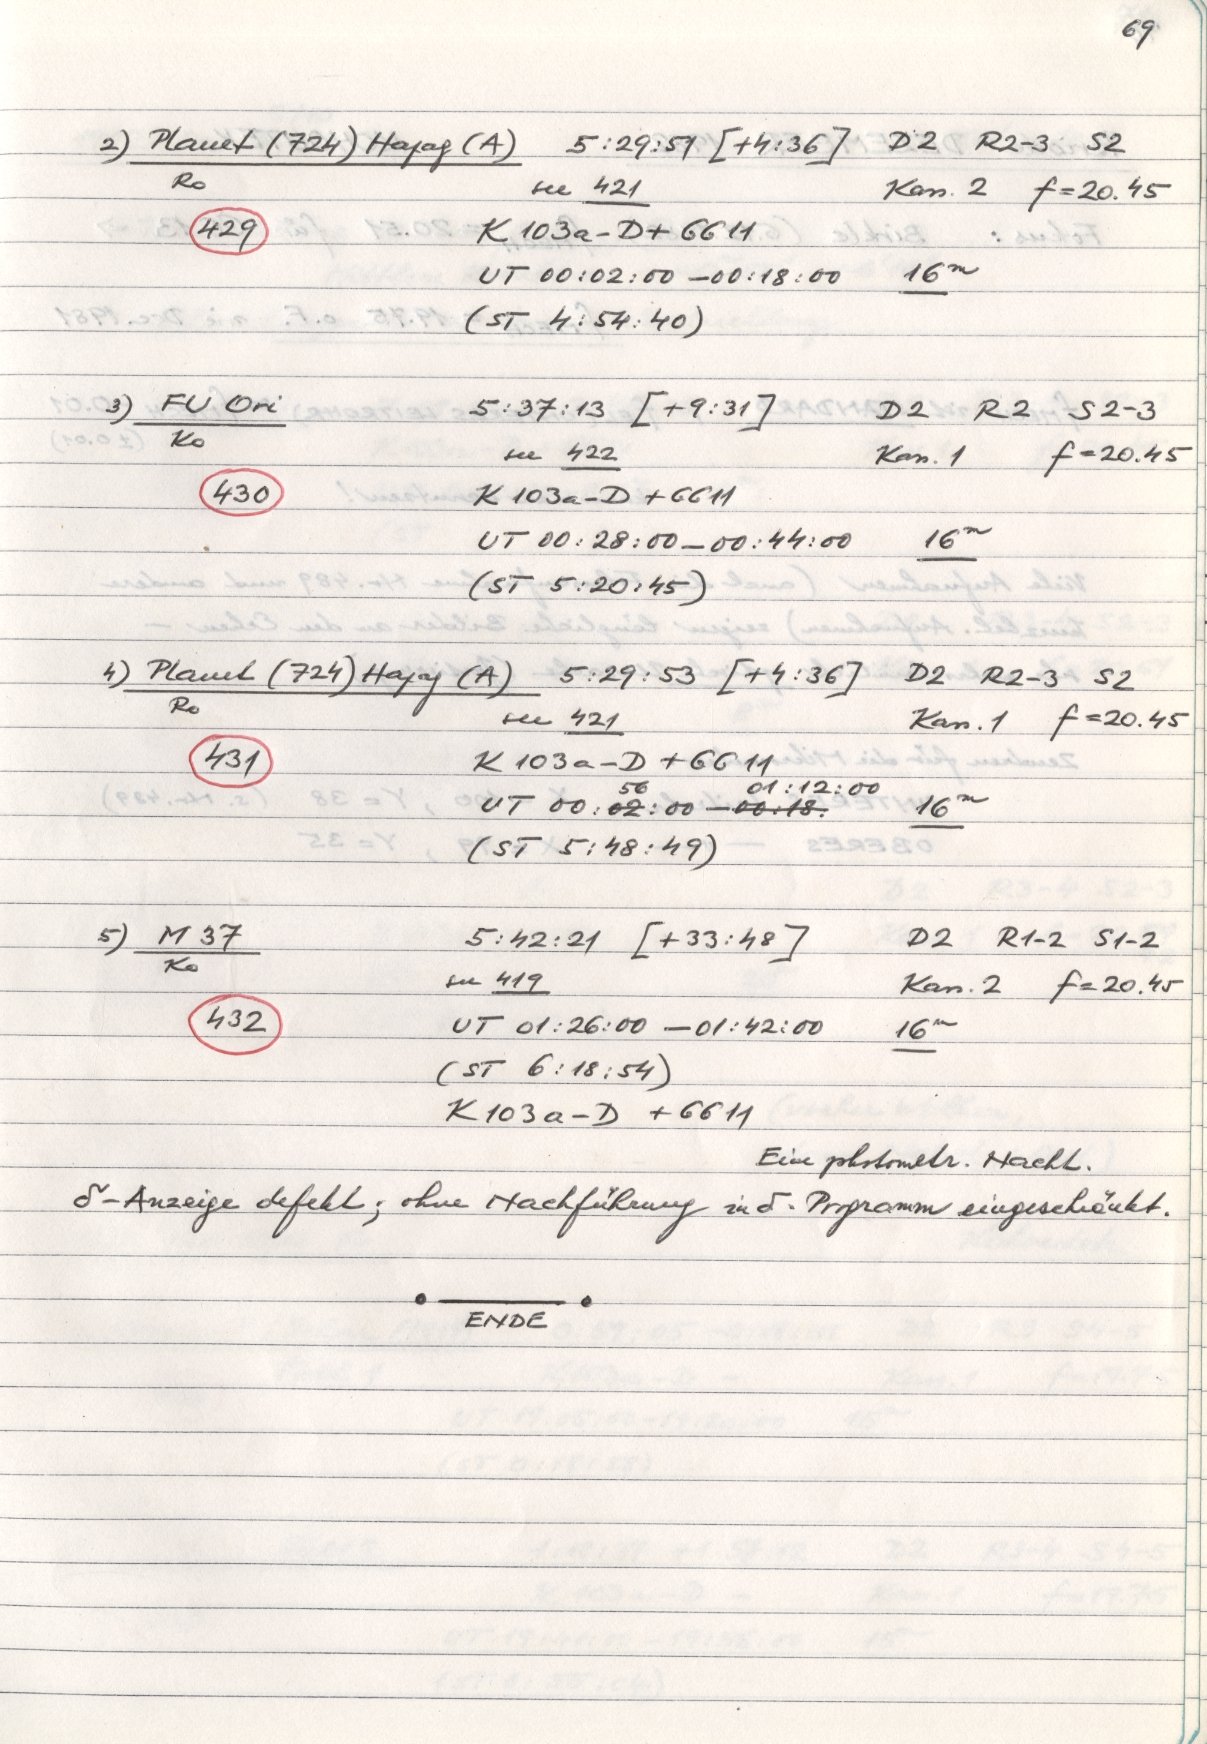 69
2) Planet (724) Hapag (A) 5:29:51 [+4:36] D2 R2-3 S2
Ro see 421 Kass. 2 f=20.45
429 K 103a-D + GG11
UT 00:02:00 -00:18:00 16m
(ST 4:54:40)
3) FU Ori 5:37:13 [+9:31] D2 R2 S2-3
Ko see 422 Kass. 1 f=20.45
430 K 103a-D + GG11
UT 00:28:00 -00:44:00 16m
(ST 5:20:45)
4) Planet (724) Hapag (A) 5:29:53 [+4:36] D2 R2-3 S2
Ro see 421 Kass. 1 f=20.45
431 K 103a-D + GG11
56 01:12:00
UT 00:02:00 -00:18. 16m
(ST 5:48:49)
5) M 37 5:42:21 [+33:48] D2 R1-2 S1-2
Ko see 419 Kass. 2 f=20.45
432 UT 01:26:00 -01:42:00 16m
(ST 6:18:54)
K 103a-D + GG11
Eine photometr. Nacht.
δ-Anzeige defekt; ohne Nachführung in δ. Programm eingeschränkt.
ENDE